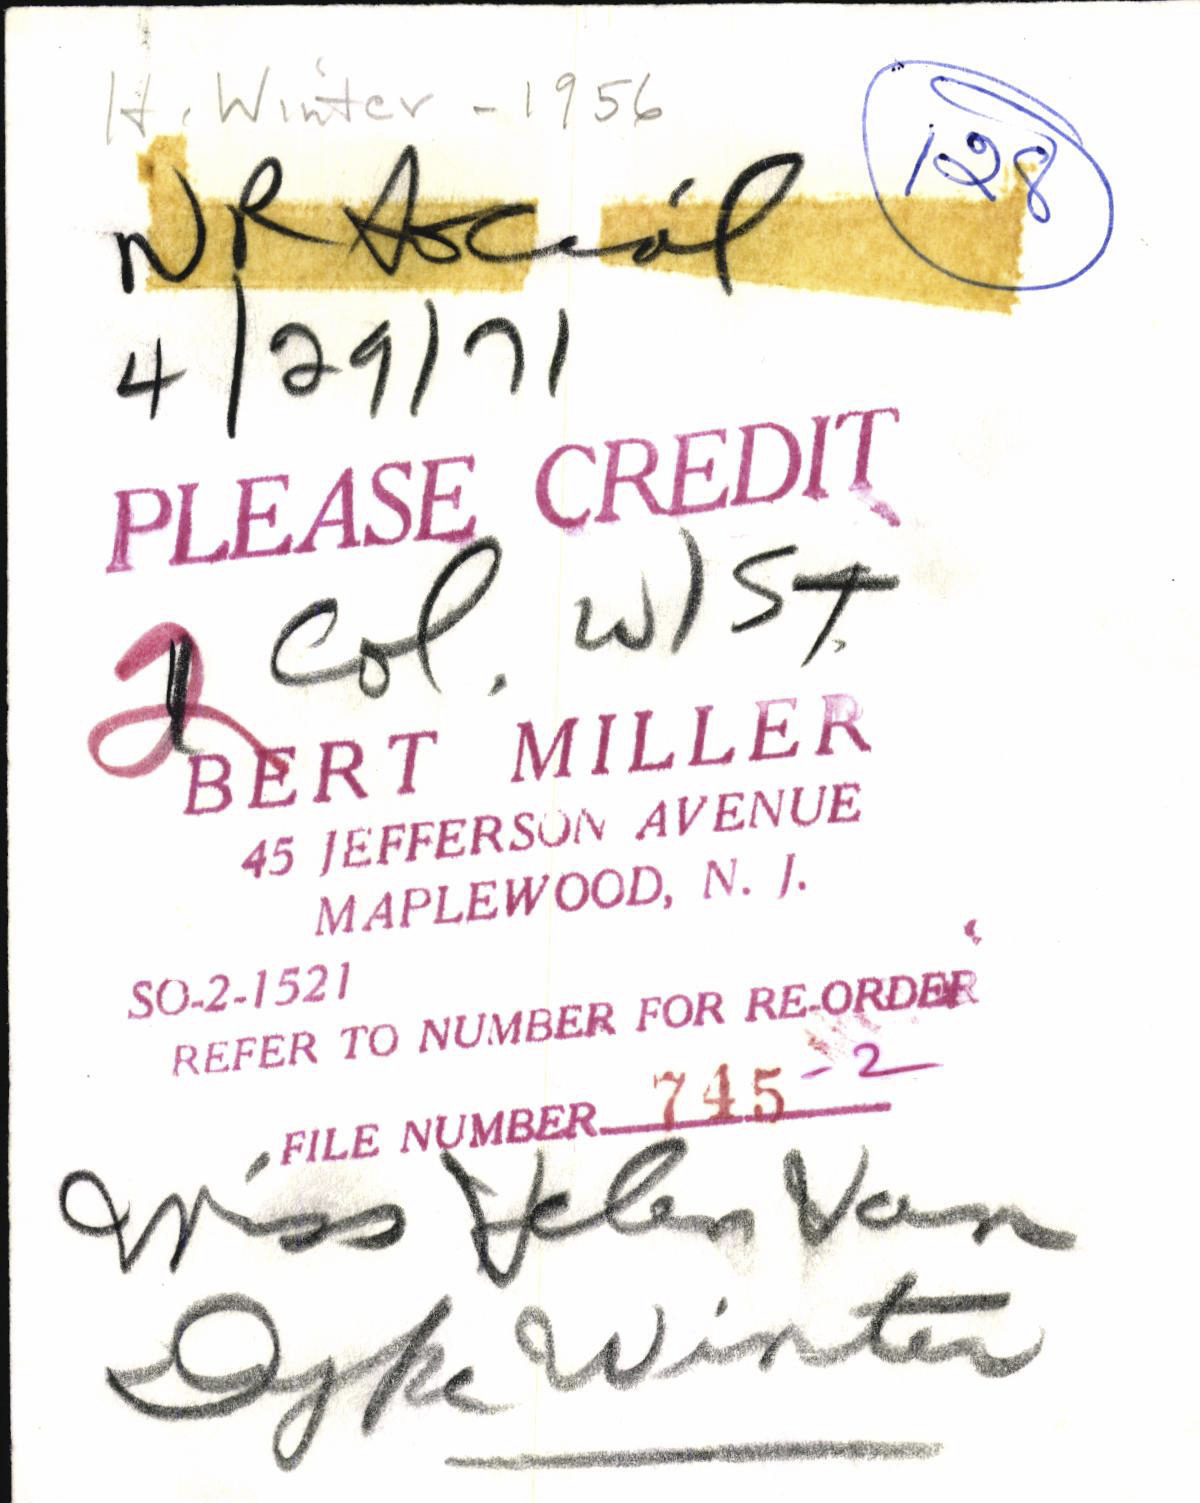 H. Winter - 1956
128
NR Social
4/29/71
PLEASE CREDIT
1 Col. w/ St.
2
BERT MILLER
45 JEFFERSON AVENUE
MAPLEWOOD, N. J.
SO-2-1521
REFER TO NUMBER FOR RE-ORDER
FILE NUMBER 745-2
Miss Helen Van
Dyke Winter